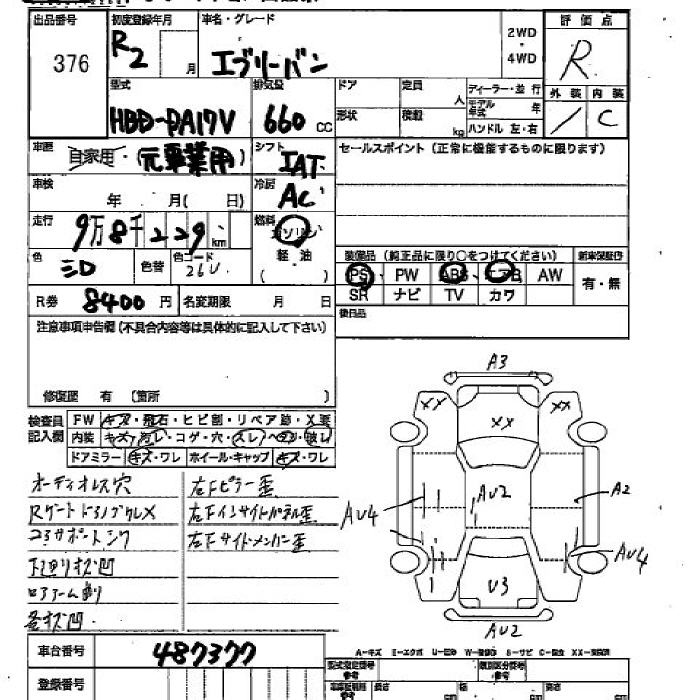 出品番号 初度登録年月 車名・グレード 評価点
376 R2 月 エブリーバン 2WD・4WD R
型式 排気量 ドア 定員 人 ディーラー・並行 外装 内装
HBD-DA17V 660 CC 形状 積載 kg モデル年式 年 / C
ハンドル 左・右
車歴 自家用・(元事業用) シフト IAT セールスポイント(正常に機能するものに限ります)
車検 年 月( 日) 冷房 AC
走行 9万8千229km 燃料 ガソリン
色 シロ 色替 色コード 26U 軽油 ( )
装備品(純正品に限り○をつけてください) 新車保証書
PS・PW ABS・エアB AW 有・無
SR ナビ TV カワ
R券 8400円 名変期限 月 日 後日品
注意事項申告欄(不具合内容等は具体的に記入して下さい)
修復歴 有 (箇所 )
検査員記入欄 FW キズ・飛石・ヒビ割・リペア跡・X要
内装 キズ・汚レ・コゲ・穴・スレ・ヘタリ・破レ
ドアミラー キズ・ワレ ホイール・キャップ キズ・ワレ
オーディオレス穴 左Fピラー歪
左Fインサイドパネル歪
コアサポート 左Fサイドメンバー歪
下廻りキズ凹
ロアアーム
A3
XX XX XX
AU4 AU2 A2
AU4
U3
AU2
A-キズ E-エクボ U-凹 W- S-サビ C- XX-
車台番号 487377
登録番号 型式指定番号 参考 類別区分番号 参考
長さ 幅 高さ